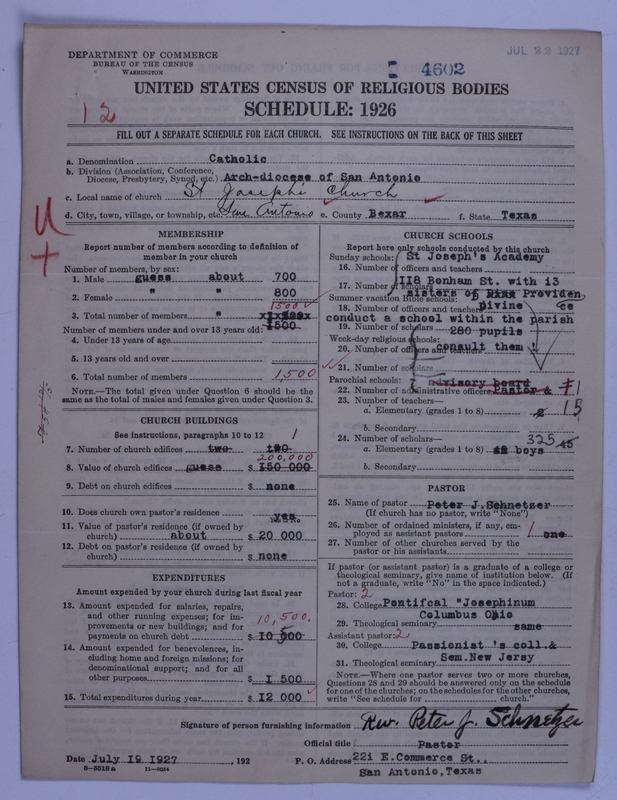 JUL 23 1927
I 4602
DEPARTMENT OF COMMERCE
BUREAU OF THE CENSUS
WASHINGTON
12
UNITED STATES CENSUS OF RELIGIOUS BODIES
SCHEDULE: 1926
FILL OUT A SEPARATE SCHEDULE FOR EACH CHURCH. SEE INSTRUCTIONS ON THE BACK OF THIS SHEET
a. Denomination Catholic
b. Division (Association, Conference, Diocese, Presbytery, Synod, etc.) Arch-diocese of San Antonio
c. Local name of church St Josephs Church
d. City, town, village, or township, etc. San Antonio e. County Bexar f. State Texas
MEMBERSHIP
Report number of members according to definition of
member in your church
Number of members, by sex:
1. Male guess about 700
2. Female " " 800
1500
3. Total number of members "
Number of members under and over 13 years old: 1500
4. Under 13 years of age
5. 13 years old and over
6. Total number of members 1,500
NOTE.—The total given under Question 6 should be
same as the total of males and females given under Question 3.
CHURCH BUILDINGS
See instructions, paragraphs 10 to 12 1
7. Number of church edifices two two
200,000
8. Value of church edifices guess $ 150 000
9. Debt on church edifices $ none
10. Does church own pastor's residence yes
11. Value of pastor's residence (if owned by
church) about $ 20 000
12. Debt on pastor's residence (if owned by
church) $ none
EXPENDITURES
Amount expended by your church during last fiscal year
13. Amount expended for salaries, repairs,
and other running expenses; for im-
provements or new buildings; and for
payments on church debt 10,500. $ 10 500
14. Amount expended for benevolences, in-
cluding home and foreign missions; for
denominational support; and for all
other purposes $ 1 500
15. Total expenditures during year $ 12 000
CHURCH SCHOOLS
Report here only schools conducted by this church
Sunday schools: St Joseph's Academy
16. Number of officers and teachers
17. Number of scholars 118 Bonham St. with 13
Summer vacation Bible schools: sisters of Providen
18. Number of officers and teachers Divine ce
conduct a school within the parish
19. Number of scholars 280 pupils
Week-day religious schools:
20. Number of officers and teachers consult them !
21. Number of scholars
Parochial schools: advisory board
22. Number of administrative officers Pastor & 7 1
23. Number of teachers—
a. Elementary (grades 1 to 8) 2 15
b. Secondary
24. Number of scholars— 325
a. Elementary (grades 1 to 8) boys 45
b. Secondary
PASTOR
25. Name of pastor Peter J.Schnetzer
(If church has no pastor, write "None")
26. Number of ordained ministers, if any, em-
ployed as assistant pastors 1 one
27. Number of other churches served by the
pastor or his assistants
If pastor (or assistant pastor) is a graduate of a college or
theological seminary, give name of institution below. (If
not a graduate, write "No" in the space indicated.)
Pastor: 2
28. College Pontifcal "Josephinum
Columbus Ohio
29. Theological seminary same
Assistant pastor: 2
30. College Passionist 's coll.&
Sem.New Jersy
31. Theological seminary
NOTE.—Where one pastor serves two or more churches,
Questions 28 and 29 should be answered only on the schedule
for one of the churches; on the schedules for the other churches,
write "See schedule for church."
Signature of person furnishing information Rev. Peter J. Schnetzer
Official title Pastor
Date July 19 1927, 192 P. O. Address 221 E.Commerce St.,
8—5518a 11—9034
San Antonio,Texas